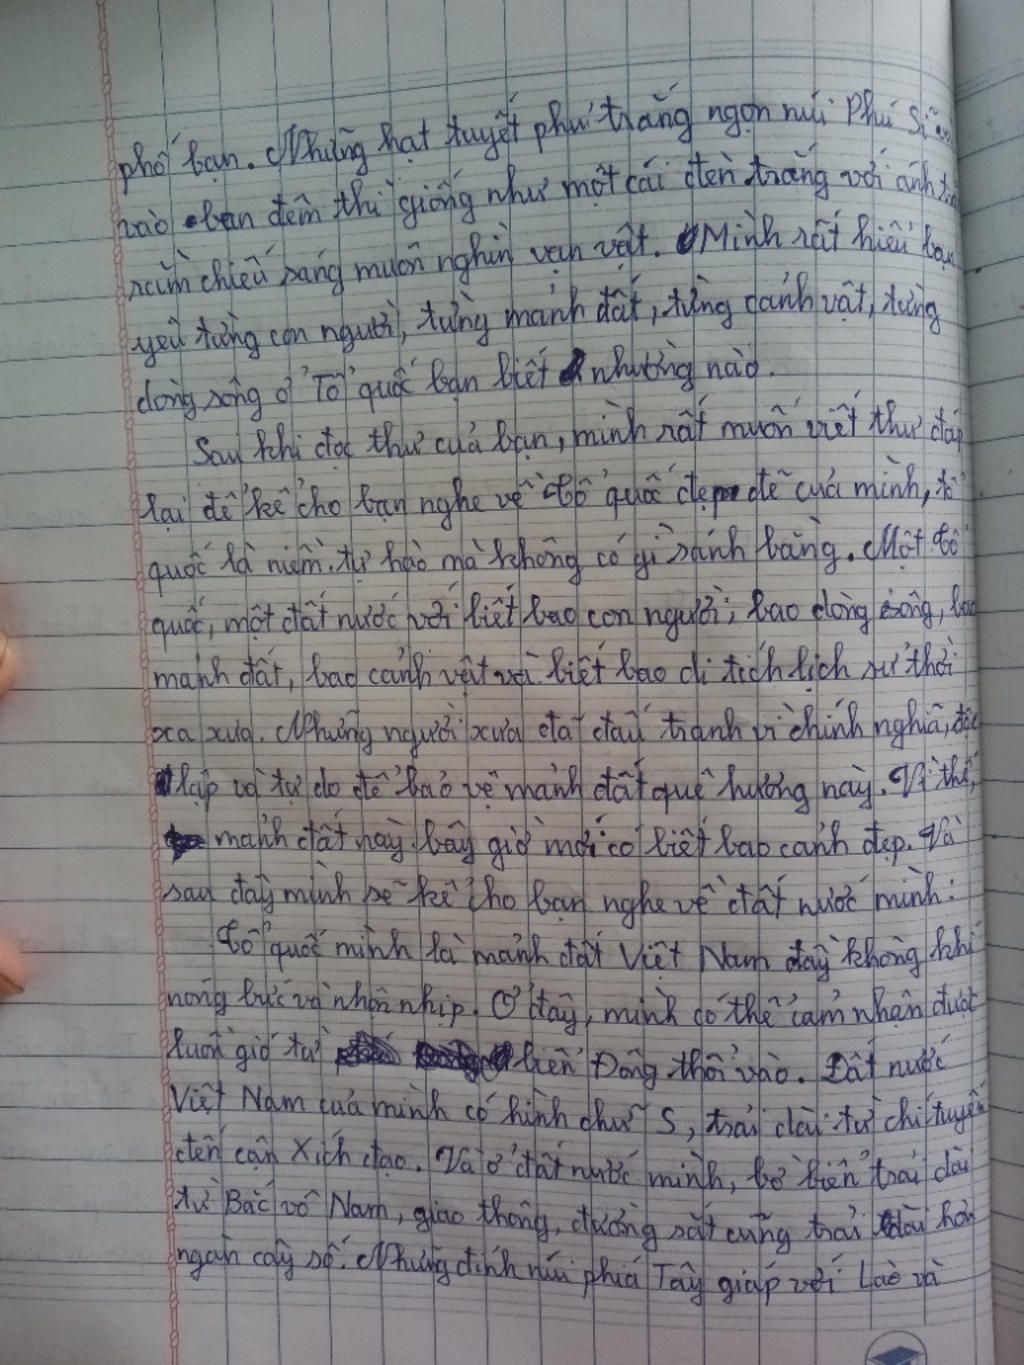 phố bạn. Những hạt tuyết phủ trắng ngọn núi Phú Sĩ
vào ban đêm thì giống như một cái đèn trắng với ánh
rằm chiếu sáng muôn nghìn vạn vật. Mình rất hiểu bạn
yêu từng con người, từng mảnh đất, từng cảnh vật, từng
dòng sông ở Tổ quốc bạn biết nhường nào.
Sau khi đọc thư của bạn, mình rất muốn viết thư đáp
lại để kể cho bạn nghe về tổ quốc đẹp đẽ của mình, tổ
quốc là niềm tự hào mà không có gì sánh bằng. Một tổ
quốc, một đất nước với biết bao con người, bao dòng sông, bao
mảnh đất, bao cảnh vật và biết bao di tích lịch sử thời
xa xưa. Những người xưa đã đấu tranh vì chính nghĩa, độc
lập và tự do để bảo vệ mảnh đất quê hương này. Vì thế,
mảnh đất này bây giờ mới có biết bao cảnh đẹp. Và
sau đây mình sẽ kể cho bạn nghe về đất nước mình:
Tổ quốc mình là mảnh đất Việt Nam đầy không khí
nóng bức và nhộn nhịp. Ở đây, mình có thể cảm nhận được
luồn gió từ biển Đông thổi vào. Đất nước
Việt Nam của mình có hình chữ S, trải dài từ chí tuyến
đến cận Xích đạo. Và ở đất nước mình, bờ biển trải dài
từ Bắc vô Nam, giao thông, đường sắt cũng trải dài hơn
ngàn cây số. Những đỉnh núi phía Tây giáp với Lào và